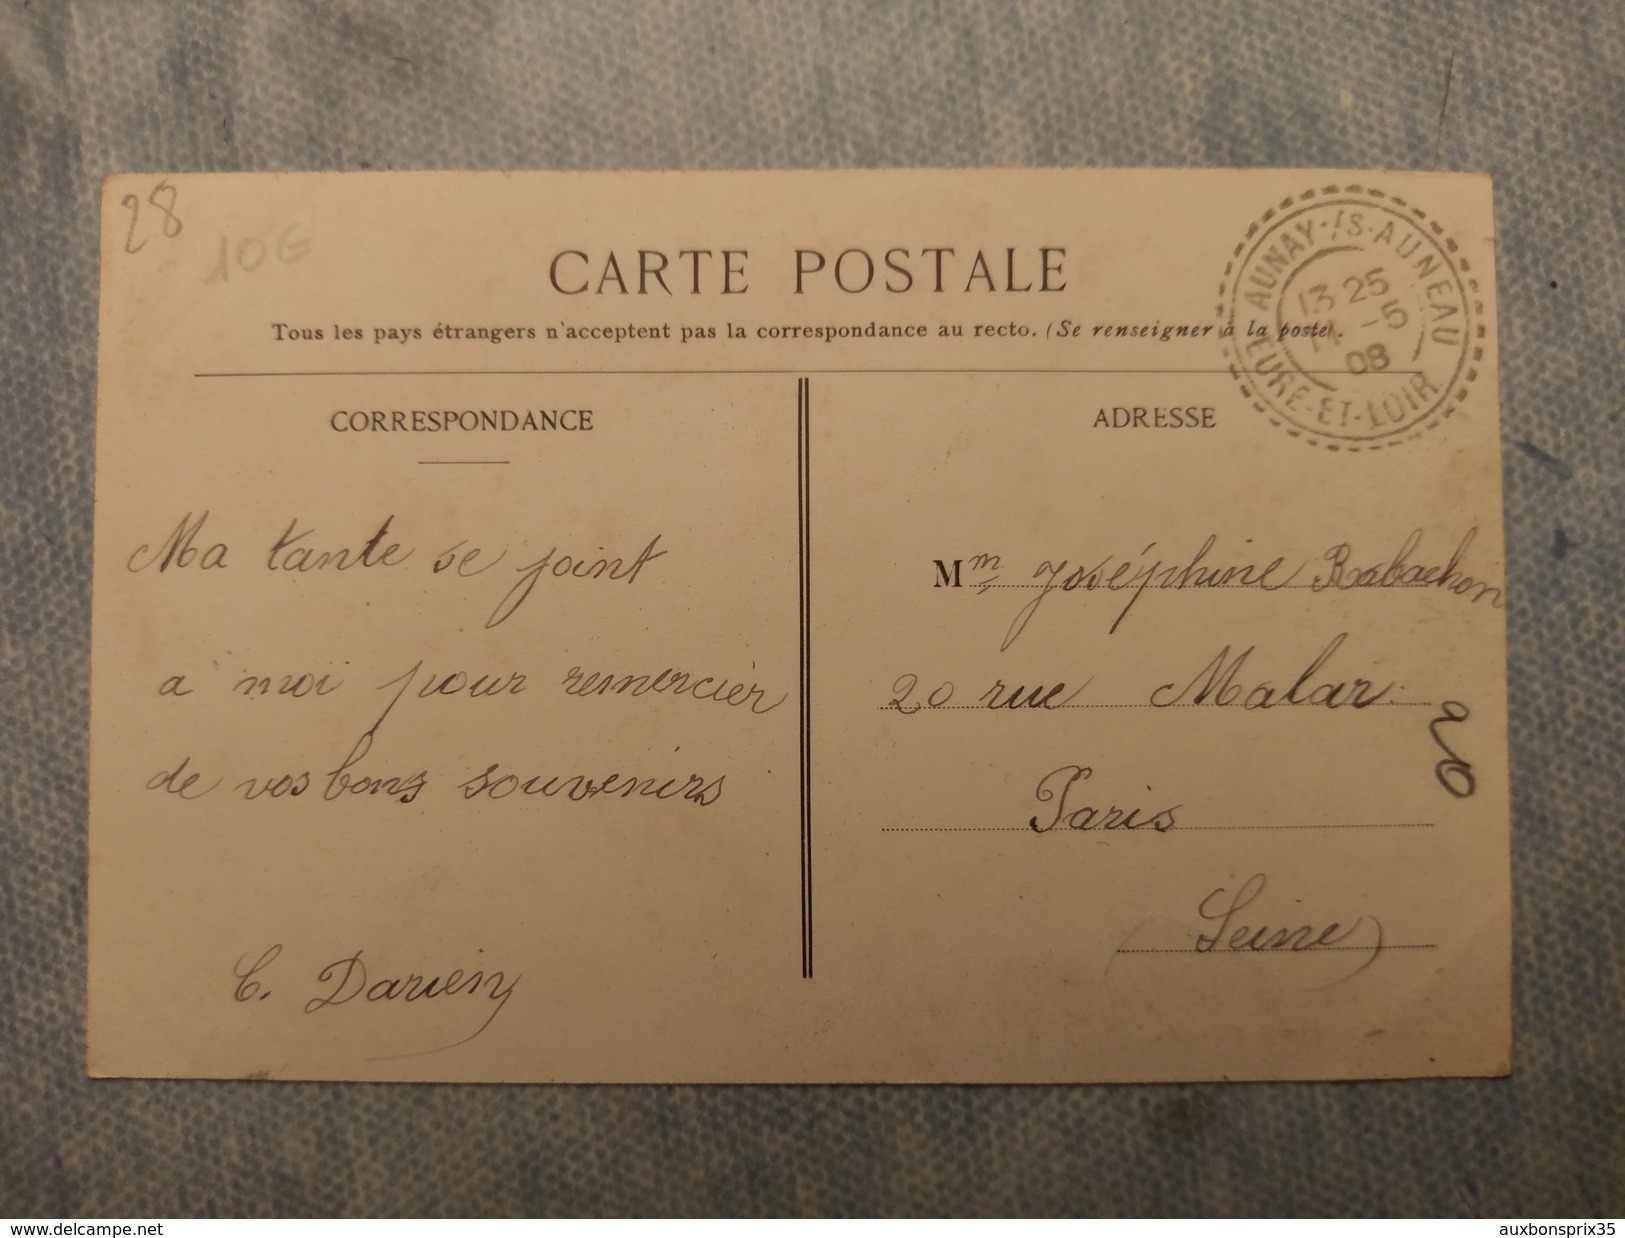 28
10€
CARTE POSTALE
Tous les pays étrangers n'acceptent pas la correspondance au recto. (Se renseigner à la poste).
AUNAY-/S-AUNEAU
13 25
5
08
EURE-ET-LOIR
CORRESPONDANCE
Ma tante se joint
a moi pour remercier
de vos bons souvenirs
C. Darien
ADRESSE
Mme Joséphine Rabachon
20 rue Malar.
20
Paris
Seine
www.delcampe.net
auxbonsprix35